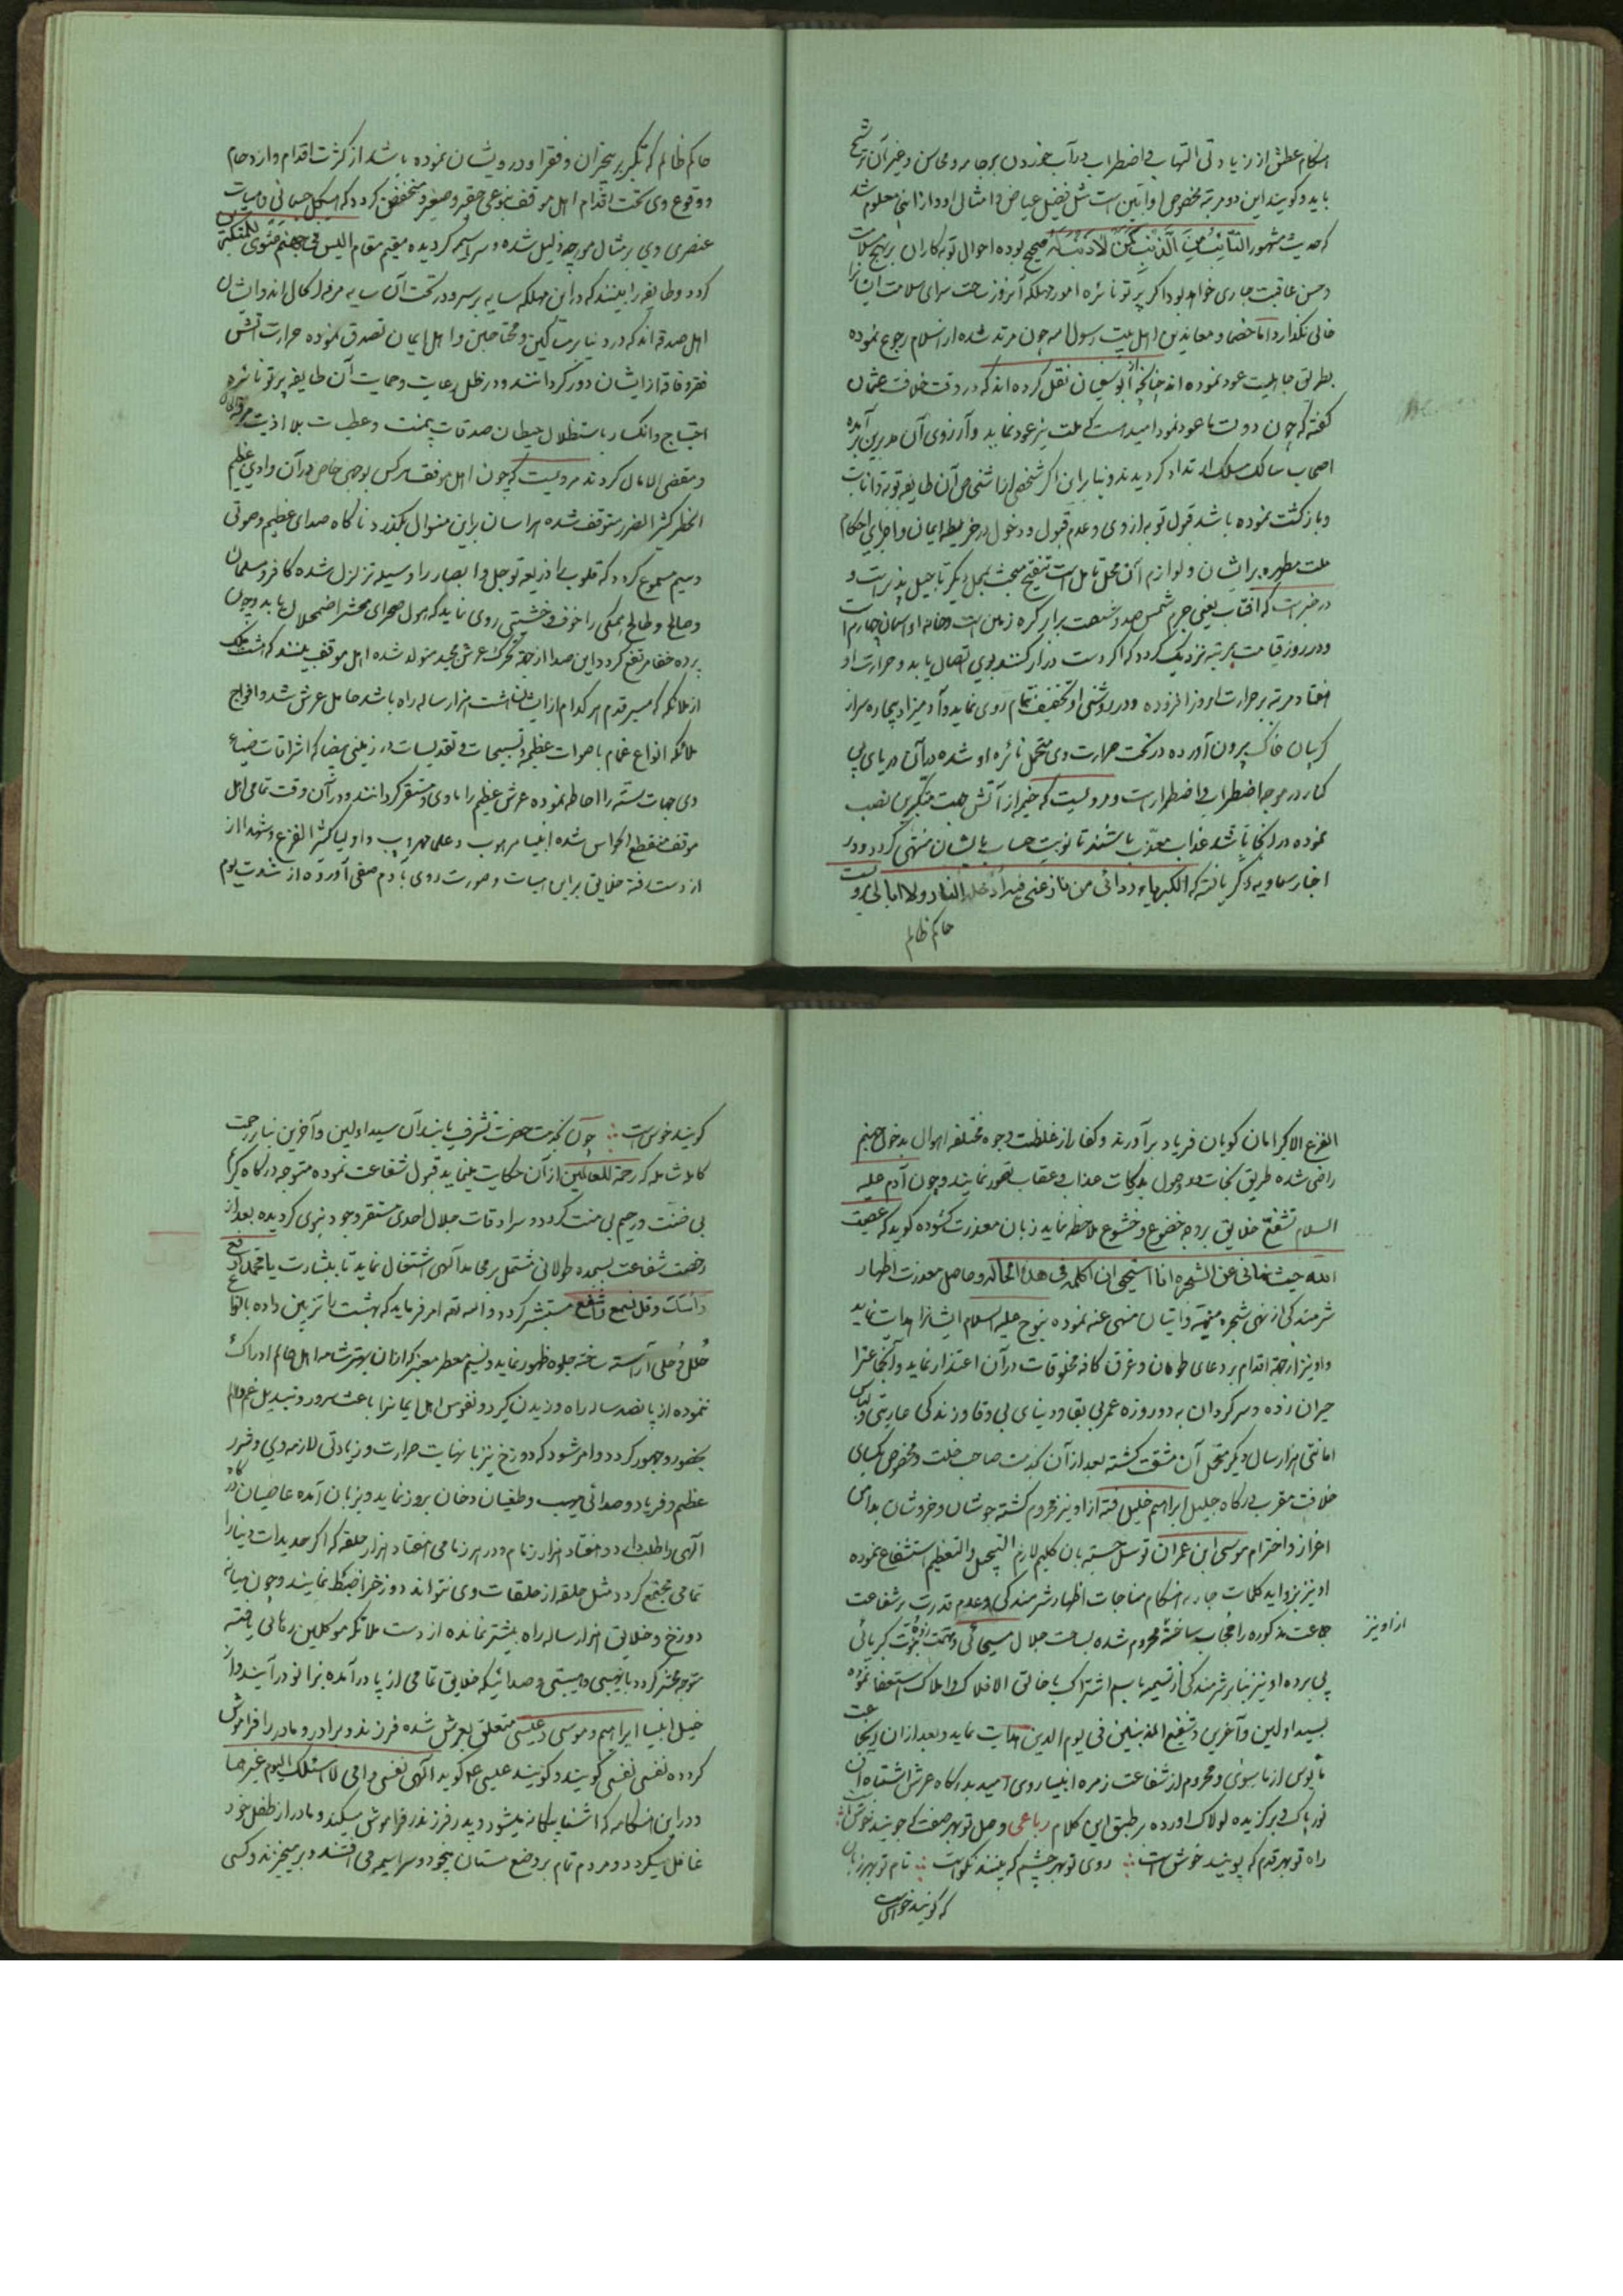 هنگام عطش از زیادتی التهاب و اضطراب در آب خوردن بر جامه و محاسن و غیر آن ترشح
باید و گویند این دو مرتبه مخصوص اوابین است مثل فضیل عیاض و امثال او و از اینجا معلوم شد
که حدیث مشهور التائب من الذنب کمن لا ذنب له صحیح بوده احوال توبه کاران بر نهج سلامت
و حسن عاقبت جاری خواهد بود اگر پرتو نائره امور مهلکه آنروز ساحت سرای سلامت ایشانرا
خالی نگذارد اما خصما و معاندین اهل بیت رسول اله چون مرتد شده از اسلام رجوع نموده
بطریق جاهلیت عود نموده اند چنانچه از ابوسفیان نقل کرده اند که در وقت خلافت عثمان
گفته که چون دولت ما عود نمود امید است که ملت نیز عود نماید و آرزوی آن مدبرین برآمده
اصحاب سالک مسلک ارتداد گردیدند و بنابراین اگر شخصی از اشخاص آن طایفه توبه و انابت
و بازگشت نموده باشد قبول توبه از وی و عدم قبول و دخول در خریطه ایمان و اجرای احکام
ملت مطهره بر ایشان و لوازم آن محل تامل است تنقیح مبحث بمحل دیگر تاجیل پذیر است و
در خبر است که افتاب یعنی جرم شمس صد و شصت برابر کره زمین است و خانه او آسمان چهارم است
و در روز قیامت بمرتبه نزدیک گردد که اگر دست دراز کنند بوی اتصال یابد و حرارت او
هفتاد مرتبه بر حرارت امروز افزوده و در روشنی او تخفیف تمام روی نماید و آدمیزاد بیچاره سر از
گریبان خاک بیرون آورده در تحت حرارت وی متحمل نائره او شده در آن دریای بی
کنار در موجه اضطراب و اضطرار است و مرویست که خیم از آتش جهت متکبرین نصب
نموده در آنجا باشد عذاب معذب باشند تا نوبت حساب بایشان منتهی گردد و در
اخبار سماویه ذکر یافته که الکبریاء ردائی من نازعنی فیه ادخله النار ولا ابالی و
حاکم ظالم
حاکم ظالم که تکبر بر عجزان و فقرا و درویشان نموده باشد از کثرت اقدام و ازدحام
و وقوع وی تحت اقدام اهل موقف بنوعی حقیر و صغیر و منخفض گردد که هیکل جسمانی و هیات
عنصری وی بر مثال مورچه ذلیل شده و سراسیمه گردیده مقیم مقام الیس فی جهنم مثوی للمتکبرین
گردد و طایفه را بینند که در این مهلکه سایه بر سر و در تحت آن سایه مرفه الحال اند و ایشان
اهل صدقه اند که در دنیا بر مساکین و محتاجین و اهل ایمان تصدق نموده حرارت آتش
فقر و فاقه از ایشان دور گردانند و در ظل رعایت و حمایت آن طایفه پرتو نائره
احتیاج و انکسار باستظلال حیطان صدقات بیمنت و عطیات بلا اذیت مرفه الحال
و مقضی الامال گردند مرویست که چون اهل موقف هر کس بوجهی خاص در آن وادی عظیم
الخطر کثیر الضرر متوقف شده هراسان براین منوال بگذرد ناگاه صدای عظیم و صوتی
وسیم مسموع گردد که قلوب را ذریعه توجل و ابصار را وسیله تزلزل شده کافر و مسلمان
و صالح و طالح همگی را خوف و خشیتی روی نماید که هول صحرای محشر اضمحلال یابد و چون
پرده خفا مرتفع گردد این صدا از جهة تحرک عرش مجید متولد شده اهل موقف بینند که هشت ملک
از ملائکه که مسیر قدم هر کدام از ایشان هشت هزار ساله راه باشد حامل عرش شده و افواج
ملائکه انواع غمام باصوات عظیمه و تسبیحات و تقدیسات در زمینی بیضا که اشراقات ضیاء
وی جهات سته را احاطه نموده عرش عظیم را ماوی و مستقر گردانند و در آن وقت تمامی اهل
موقف منقطع الحواس شده انبیا مرهوب و علما مهروب و اولیا کثیر الفزع و شهدا از
از دست رفته خلایق براین هیات و صورت روی بآدم صفی آورده از شدت یوم
الفزع الاکبر امان گویان فریاد برآورند و کفار از غلظت وجوه مختلفه اهوال بدخول جهنم
راضی شده طریق نجات در وصول بدرکات عذاب و عقاب تصور نمایند و چون آدم علیه
السلام تشفع خلایق بر وجه خضوع و خشوع ملاحظه نماید زبان معذرت گشوده گوید که عصیت
الله حیث نهانی عن الشجره انا استحیی ان اکلمه فی هذا الحاله و حاصل معذرت اظهار
شرمندگی از نهی شجره منهیه و اتیان منهی عنه نموده بنوح علیه السلام ایشانرا هدایت نماید
و او نیز از جهة اقدام بر دعای طوفان و غرق کافه مخلوقات در آن اعتذار نماید و آنجماعت را
حیران زده و سرگردان به دو روزه عمر بی بقا و دنیای بی وفا و زندگی عاریتی و لباس
امانتی هزار سال دیگر متحمل آن مشقت گشته بعد از آن بخدمت صاحب خلت و مخصوص بکسای
خلافت مقرب درگاه جلیل ابراهیم خلیل رفته از او نیز محروم گشته جوشان و خروشان بدامن
اعزاز و احترام موسی ابن عمران توسل جسته بان کلیم لازم التبجیل والتعظیم استشفاع نموده
او نیز بزواید کلمات جاریه هنگام مناجات اظهار شرمندگی و عدم قدرت بر شفاعت
جماعت مذکوره را محجاب ساخته محروم شده بساحت جلال مسیحائی و نبوت کبریائی
از او نیز
پی برده او نیز بنابر شرمندگی از تسمیه باسم اشتراک با خالق الافلاک و املاک استعفا نموده
بسید اولین و آخرین و شفیع المذنبین فی یوم الدین هدایت نماید و بعد از ان اینجماعت
مایوس از ماسوی و محروم از شفاعت زمره انبیا روی امید بدرگاه عرش اشتباه آن
نور پاک و برگزیده لولاک اورده بر طبق این کلام رباعی وصل تو بهر صفت که جویند خوش است
راه تو بهر قدم که پویند خوش است روی تو بهر چشم که بینند نکوست نام تو بهر زبان
که گویند خوش است
گویند خوش است چون بخدمت حضرت تشرف یابند آن سید اولین و آخرین بنابر رحمت
کامله شامله که رحمة للعالمین از آن حکایت مینماید قبول شفاعت نموده متوجه درگاه کریم
بی ضنت و رحیم بی منت گردد و سرادقات جلال احدی مستقر وجود نبوی گردیده بعد از
رخصت شفاعت بسجده طولانی مشتمل بر محامد آلهی اشتغال نماید تا بشارت یا محمد ارفع
راسک و قل تسمع و اشفع تشفع مستبشر گردد و الله تعه امر فرماید که بهشت را تزیین داده بانواع
حلل و حلی آراسته ساخته جلوه ظهور نماید و نسیم معطر معنبر که از ان بهتر شامه اهل عالم ادراک
ننموده از پانصد ساله راه وزیدن گیرد و نفوس اهل ایمانرا باعث سرور و تبدیل غم و الم
بحضور و حبور گردد و امر شود که دوزخ نیز با نهایت حرارت و زیادتی لازمه وی و شرر
عظیم و فریاد و صدائی مهیب و طغیان دخان بروز نماید و بزبان آمده عاصیان درگاه
آلهی را طلب دارد و هفتاد هزار زمام و در هر زمامی هفتاد هزار حلقه که اگر حدیدات دنیا را
تمامی مجتمع گردد مثل حلقه از حلقات وی نتواند دوزخ را ضبط نمایند و چون میانه
دوزخ و خلایق هزار ساله راه بیشتر نمانده از دست ملائکه موکلین رهائی یافته
متوجه محشر گردد با نهیبی و هیبتی و صدائیکه خلایق تمامی از پا درآمده بزانو درآیند و از
خیل انبیا ابراهیم و موسی و عیسی متعلق بعرش شده فرزند و برادر و مادر را فراموش
کرده نفسی نفسی گویند و گویند عیسی ع گوید آلهی نفسی و امی لا اسئلک الیوم غیرها
و در این هنگامه که اشنا بیگانه میشود و پدر فرزند فراموش میکند و مادر از طفل خود
غافل میگردد و مردم تمام بر وضع مستان بیخود و سراسیمه می افتند و برمیخیزند و کسی